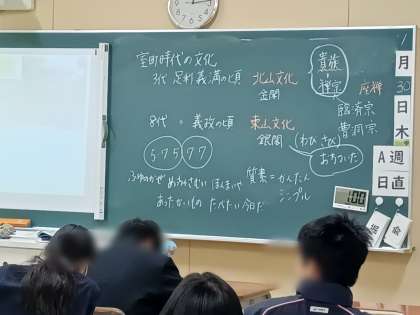 室町時代の文化
3代 足利義満の頃 北山文化
金閣
貴族
禅宗
座禅
臨済宗
曹洞宗
8代 〃 義政の頃 東山文化
銀閣
(わび さび)
おちついた
575 77
質素=かんたん
シンプル
ふゆのかぜ めちゃさむい ほんまいや
あったかいもの たべたい今日だ
月
30
日
木
A週
日直
1:00